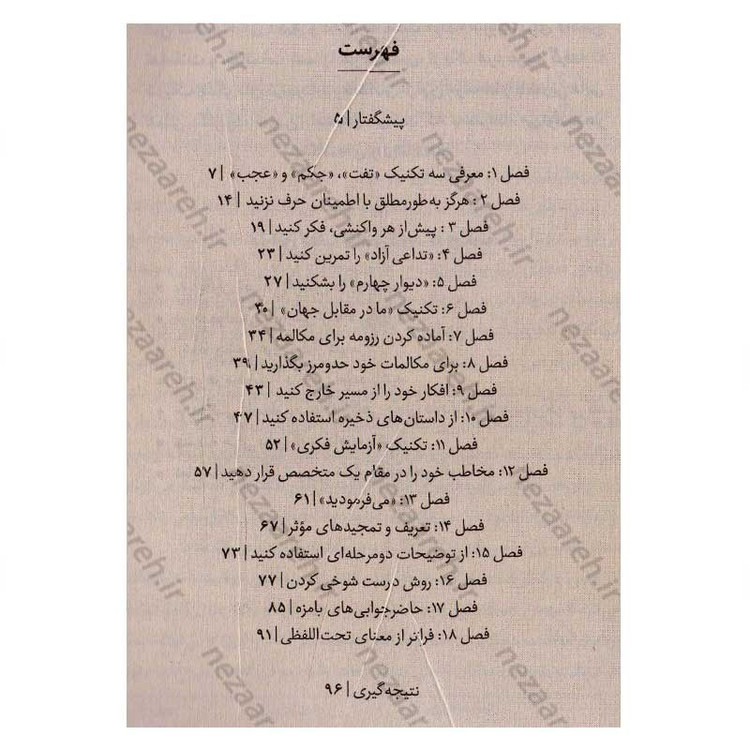 فهرست
پیشگفتار | ۵
فصل ۱: معرفی سه تکنیک «تفت»، «جکم» و «عجب» | ۷
فصل ۲: هرگز به‌طورمطلق با اطمینان حرف نزنید | ۱۴
فصل ۳: پیش‌از هر واکنشی، فکر کنید | ۱۹
فصل ۴: «تداعی آزاد» را تمرین کنید | ۲۳
فصل ۵: «دیوار چهارم» را بشکنید | ۲۷
فصل ۶: تکنیک «ما در مقابل جهان» | ۳۰
فصل ۷: آماده کردن رزومه برای مکالمه | ۳۴
فصل ۸: برای مکالمات خود حدومرز بگذارید | ۳۹
فصل ۹: افکار خود را از مسیر خارج کنید | ۴۳
فصل ۱۰: از داستان‌های ذخیره استفاده کنید | ۴۷
فصل ۱۱: تکنیک «آزمایش فکری» | ۵۲
فصل ۱۲: مخاطب خود را در مقام یک متخصص قرار دهید | ۵۷
فصل ۱۳: «می‌فرمودید» | ۶۱
فصل ۱۴: تعریف و تمجیدهای مؤثر | ۶۷
فصل ۱۵: از توضیحات دومرحله‌ای استفاده کنید | ۷۳
فصل ۱۶: روش درست شوخی کردن | ۷۷
فصل ۱۷: حاضرجوابی‌های بامزه | ۸۵
فصل ۱۸: فراتر از معنای تحت‌اللفظی | ۹۱
نتیجه‌گیری | ۹۶
nezaareh.ir